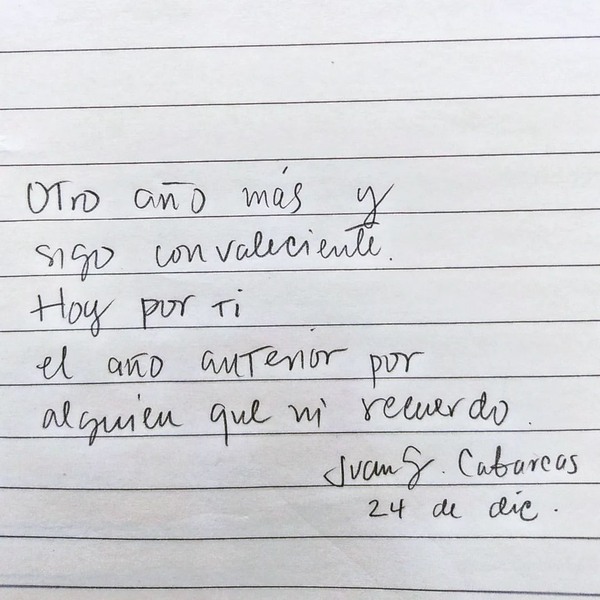 Otro año más y
sigo convaleciente.
Hoy por ti
el año anterior por
alguien que ni recuerdo.
Juan S. Cabarcas
24 de dic.